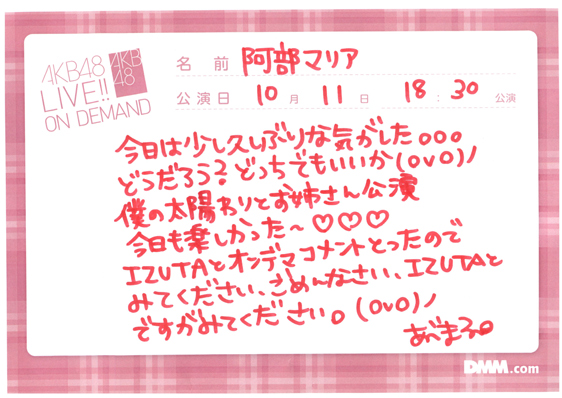 AKB48
LIVE!!
ON DEMAND
AKB
48
名前 阿部マリア
公演日 10月11日 18:30公演
今日は少し久しぶりな気がした。。。
どうだろう?どっちでもいいか(OVO)ノ
僕の太陽わりとお姉さん公演
今日も楽しかった~♡♡♡
IZUTAとオンデマコメントとったので
みてください、ごめんなさい、IZUTAと
ですがみてください。(OVO)ノ
あべまろ
DMM.com